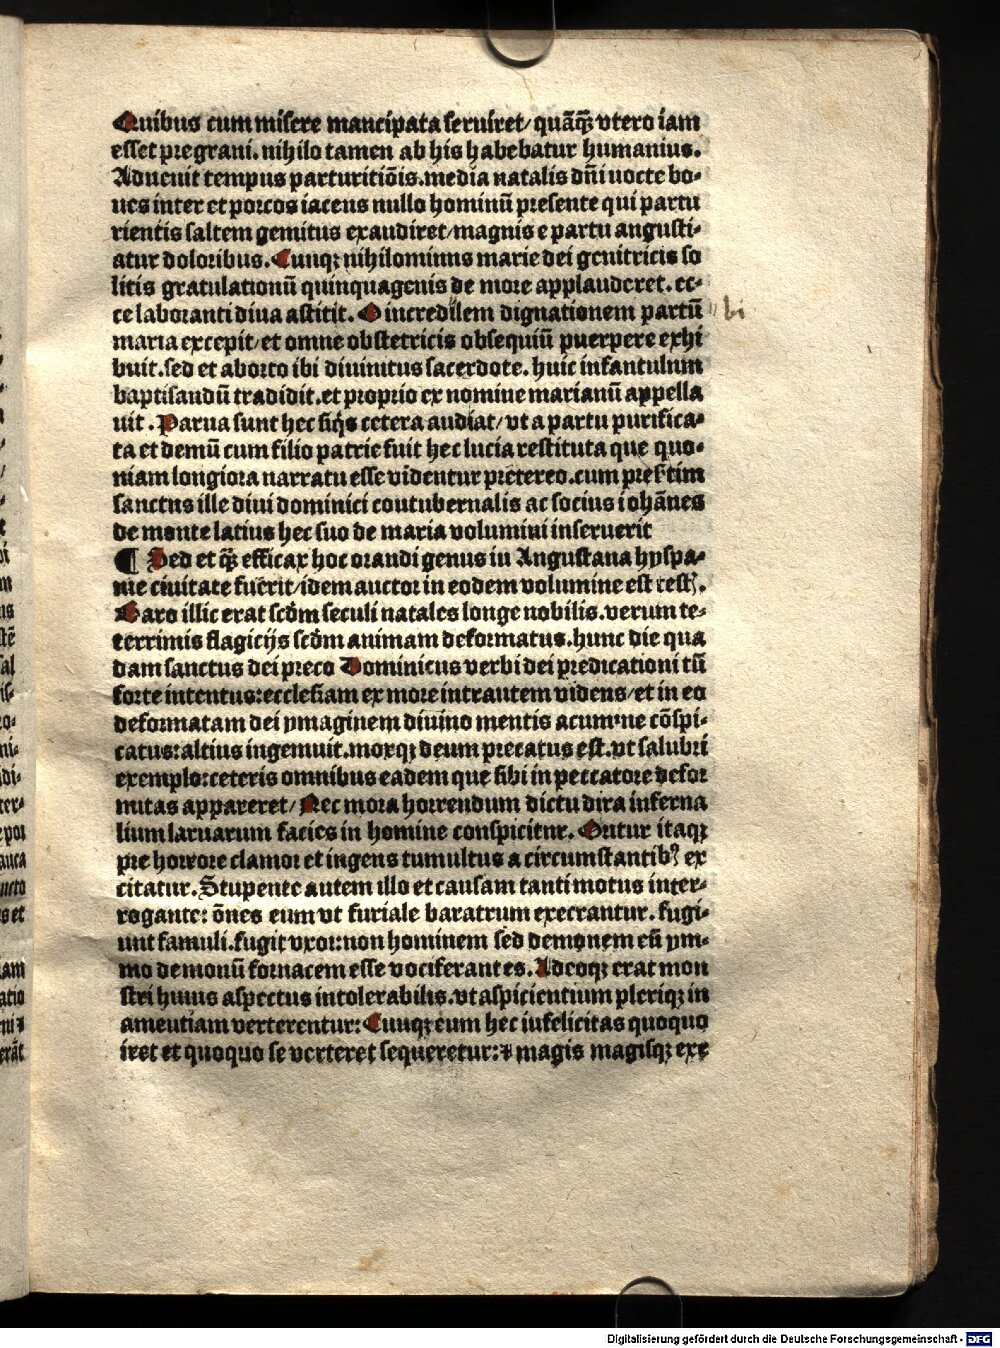 Quibus cum misere mancipata seruiret/ quãq̃ vtero iam
esset pregrani. nihilo tamen ab his habebatur humanius.
Aduenit tempus parturitiõis. media natalis dñi nocte bo⸗
ues inter et porcos iacens nullo hominũ presente qui partu
rientis saltem gemitus exaudiret/ magnis e partu angusti⸗
atur doloribus. Cunqꝫ nihilominus marie dei genitricis so
litis gratulationũ quinquagenis de more applauderet. ec⸗
ce laboranti diua astitit. O incredilem dignationem partũ
maria excepit/ et omne obstetricis obsequiũ puerpere exhi
buit. sed et aborto ibi diuinitus sacerdote. huic infantulum
baptisandũ tradidit. et proprio ex nomine marianũ appella
uit. Parua sunt hec siq̃s cetera audiat/ vt a partu purifica⸗
ta et demũ cum filio patrie fuit hec lucia restituta que quo⸗
niam longiora narratu esse videntur pretereo. cum presertim
sanctus ille diui dominici contubernalis ac socius iohãnes
de monte latius hec suo de maria volumini inseruerit
¶ Sed et q̃ efficax hoc orandi genus in Angustana hyspa⸗
nie ciuitate fuerit/ idem auctor in eodem volumine est testꝭ.
Baro illic erat scđm seculi natales longe nobilis. verum te⸗
terrimis flagicijs scđm animam deformatus. hunc die qua
dam sanctus dei preco Dominicus verbi dei predicationi tũ
forte intentus: ecclesiam ex more intrantem videns/ et in eo
deformatam dei ymaginem diuino mentis acumine cõspi⸗
catus: altius ingemuit. moxqꝫ deum precatus est. vt salubri
exemplo: ceteris omnibus eadem que sibi in peccatore defor
mitas appareret/ Nec mora horrendum dictu dira inferna
lium laruarum facies in homine conspicitur. Oritur itaqꝫ
pre horrore clamor et ingens tumultus a circumstantibꝰ ex
citatur. Stupente autem illo et causam tanti motus inter⸗
rogante: õnes eum vt furiale baratrum execrantur. fugi⸗
unt famuli. fugit vxor: non hominem sed demonem eũ ym⸗
mo demonũ fornacem esse vociferantes. Adeoqꝫ erat mon
stri huius aspectus intolerabilis. vt aspicientium pleriqꝫ in
amentiam verterentur: Cunqꝫ eum hec infelicitas quoquo
iret et quoquo se verteret sequeretur: ⁊ magis magisqꝫ exe
Digitalisierung gefördert durch die Deutsche Forschungsgemeinschaft - DFG